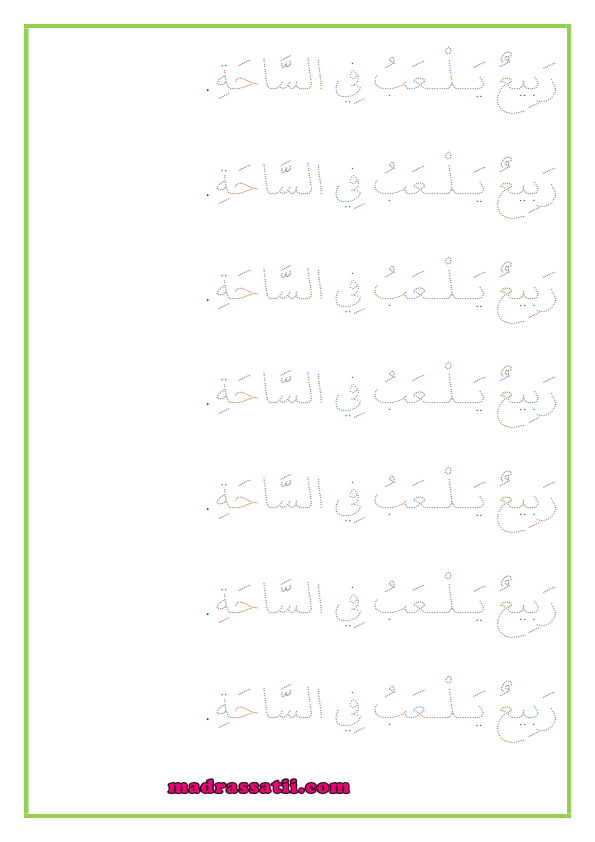 رَبِيعٌ يَلْعَبُ فِي السَّاحَةِ .
رَبِيعٌ يَلْعَبُ فِي السَّاحَةِ .
رَبِيعٌ يَلْعَبُ فِي السَّاحَةِ .
رَبِيعٌ يَلْعَبُ فِي السَّاحَةِ .
رَبِيعٌ يَلْعَبُ فِي السَّاحَةِ .
رَبِيعٌ يَلْعَبُ فِي السَّاحَةِ .
رَبِيعٌ يَلْعَبُ فِي السَّاحَةِ .
madrassatii.com